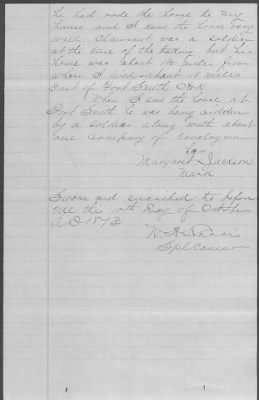 he had rode the horse to my
house and I knew the horse very
well. Claimant was a soldier
at the time of the taking but his
home was about 10 miles from
where I lived about 18 miles
East of Fort Smith Ark
When I saw the horse at
Fort Smith he was being ridden
by a soldier along with about
one company of cavalrymen
her
Margaret X Jackson
Mark
Sworn and subscribed to before
me this 10th Day of October
AD 1873
Spl Comr